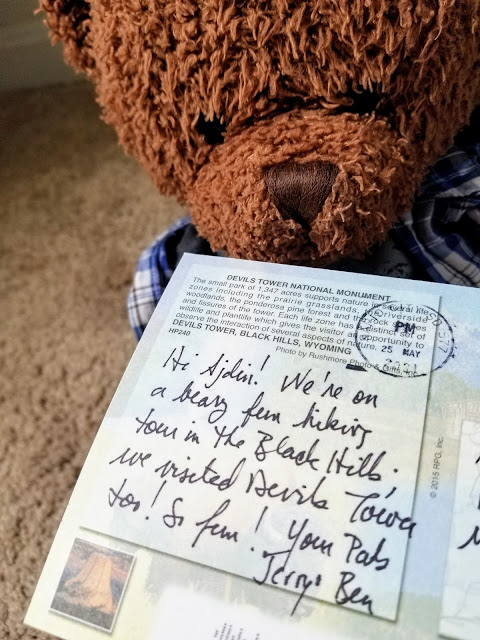 DEVILS TOWER NATIONAL MONUMENT
The small park of 1,347 acres supports nature in several life
zones including the prairie grasslands, the
woodlands, the ponderosa pine forest and the rock
and fissures of the tower. Each life zone has a distinct set of
wildlife and plantlife which gives the visitor an opportunity to
observe the interaction of several aspects of nature.
DEVILS TOWER, BLACK HILLS, WYOMING
HP240
Photo by Rushmore Photo & Gifts, Inc.
PM
25 MAY
Hi Ajdin! We're on
a beary fun hiking
tour in the Black Hills.
we visited Devils Tower
too! So fun! Your Pals
Jerry & Ben
© 2015 RPG, Inc.